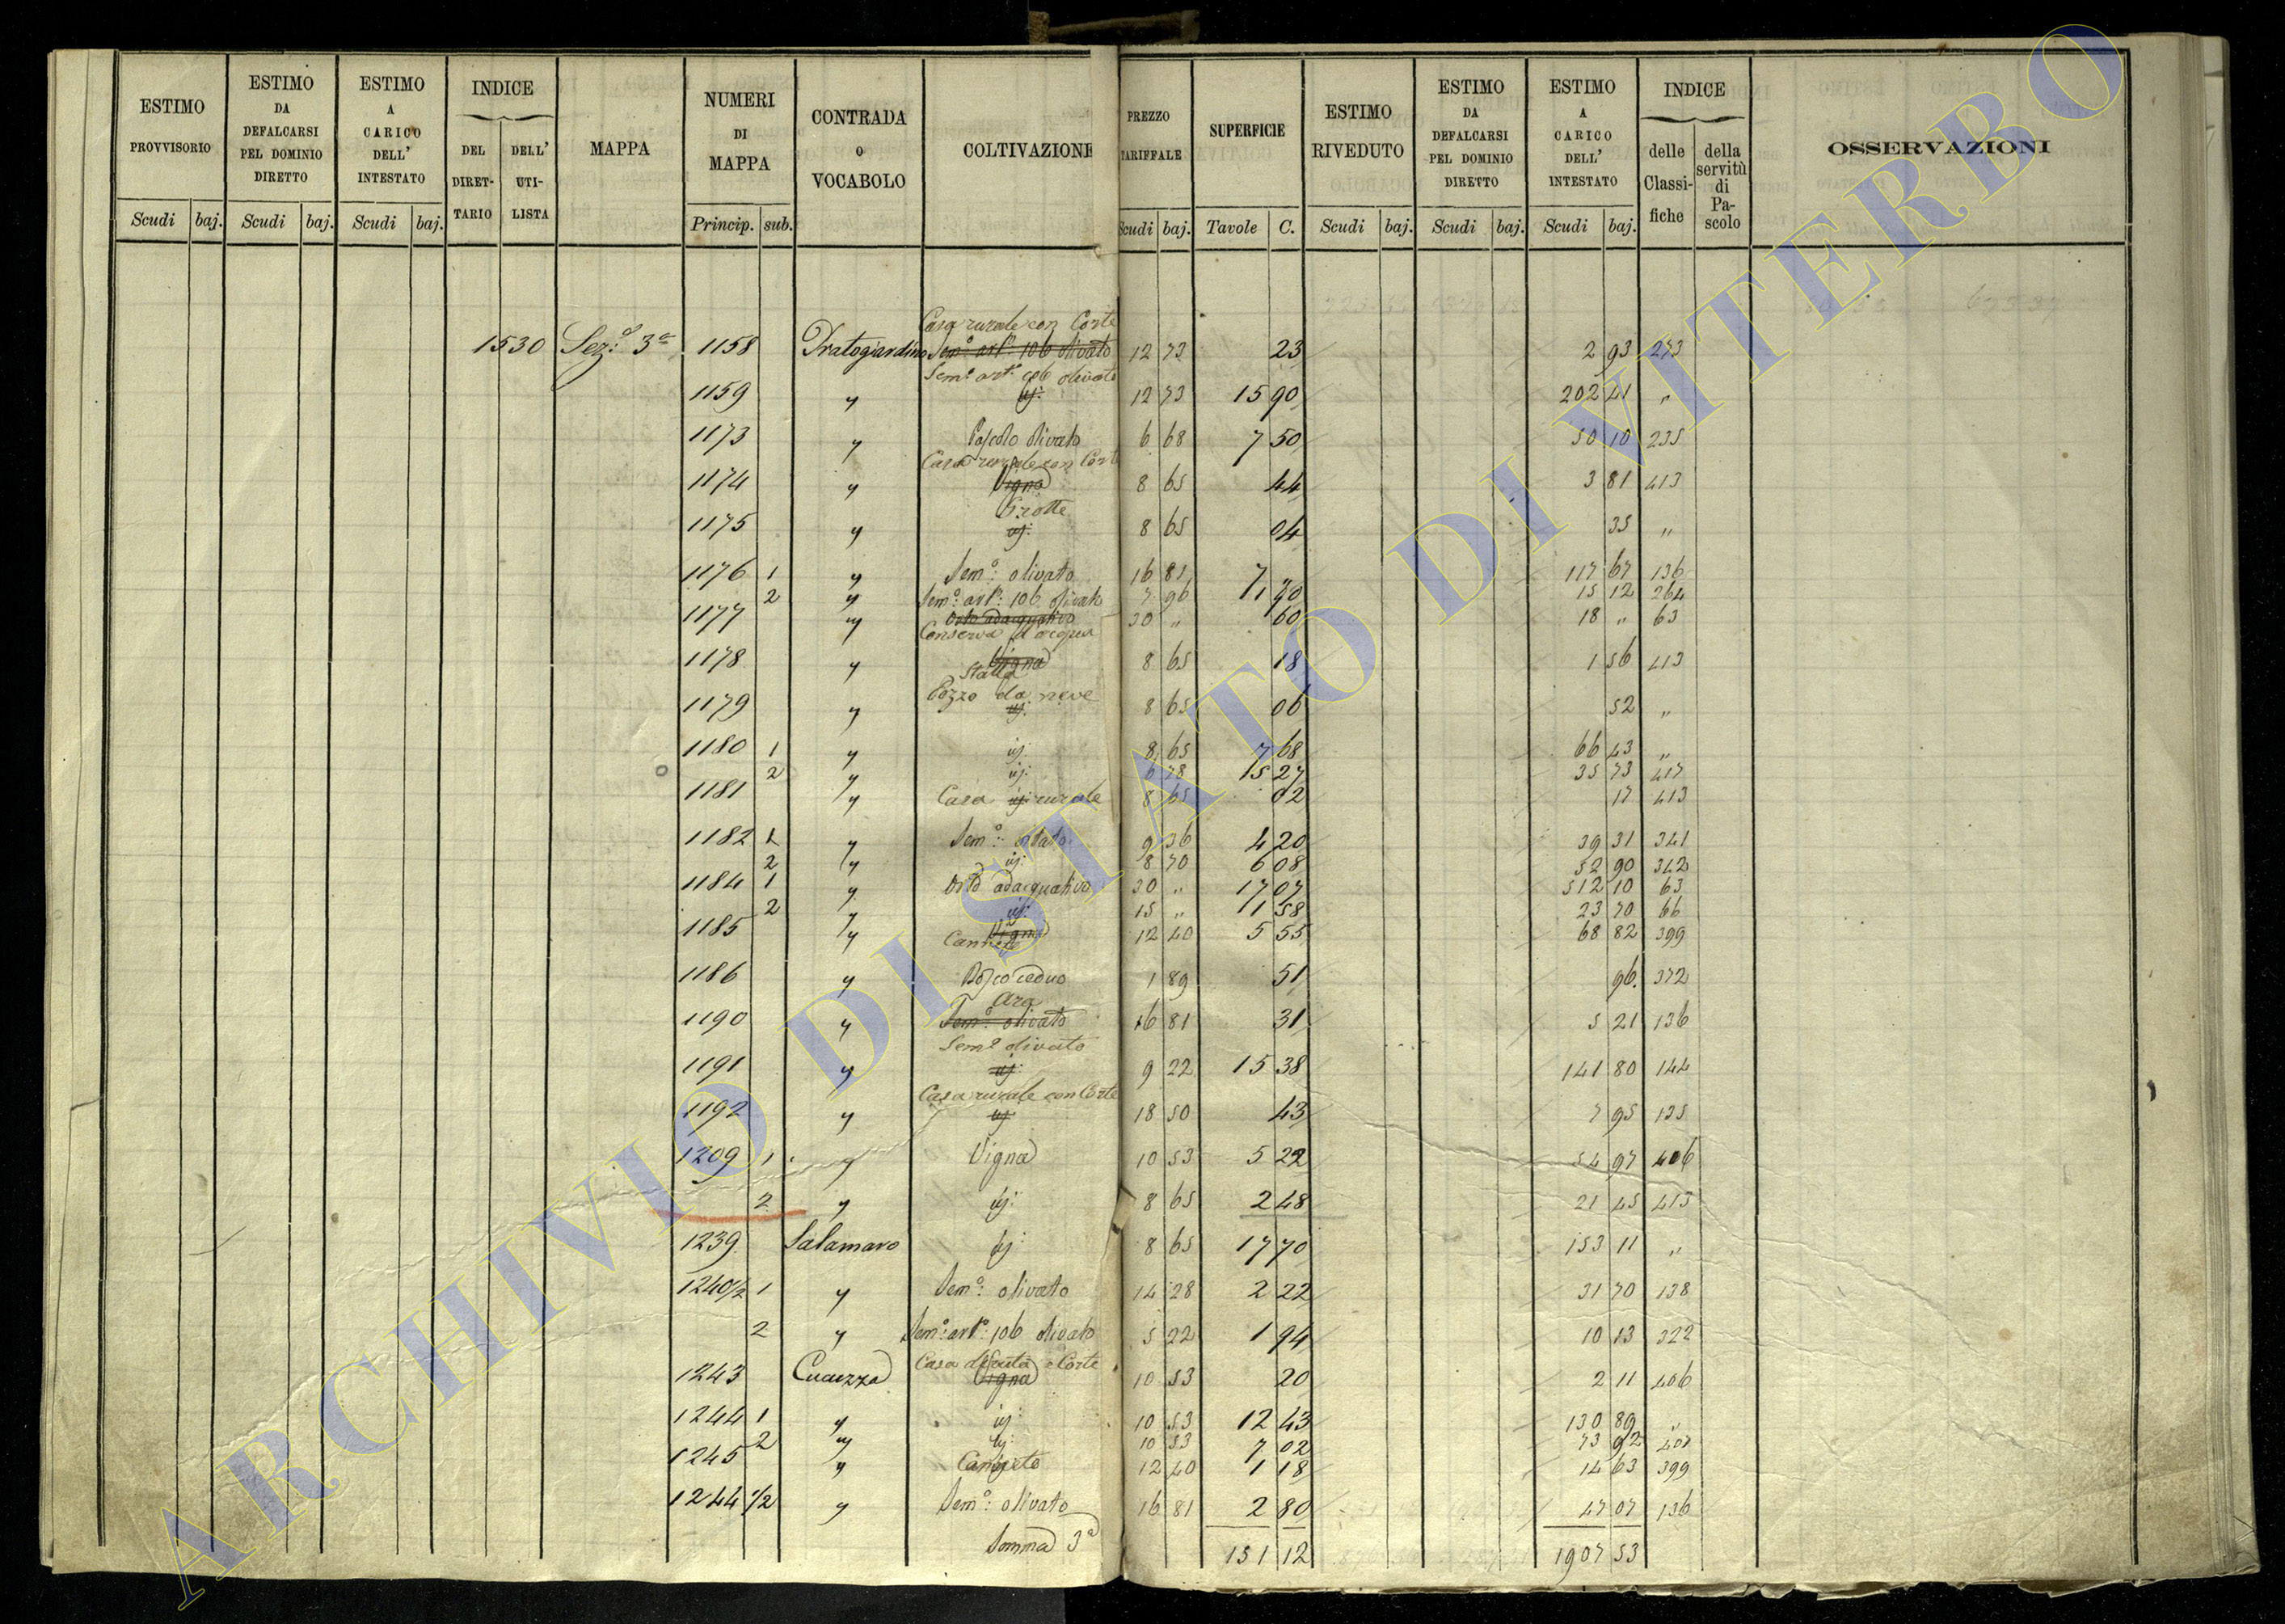 ESTIMO PROVVISORIO | ESTIMO DA DEFALCARSI PEL DOMINIO DIRETTO | ESTIMO A CARICO DELL' INTESTATO | INDICE DEL DIRET-TARIO | DELL' UTI-LISTA | MAPPA | NUMERI DI MAPPA | CONTRADA O VOCABOLO | COLTIVAZIONE | PREZZO TARIFFALE | SUPERFICIE | ESTIMO RIVEDUTO | ESTIMO DA DEFALCARSI PEL DOMINIO DIRETTO | ESTIMO A CARICO DELL' INTESTATO | INDICE delle Classi-fiche | della servitù di Pa-scolo | OSSERVAZIONI
Scudi baj. | Scudi baj. | Scudi baj. | Princip. sub. | Scudi baj. | Tavole C. | Scudi baj. | Scudi baj. | Scudi baj.
Casa rurale con Corte
1530 Sez: 3a 1158 Pratogiardino Semo: arto: 106 olivato 12 73 23 2 93 273
Semo arto 106 olivato
1159 " id: 12 73 15 90 202 41 "
1173 " Pascolo olivato 6 68 7 50 50 10 235
Casa rurale con Corte
1174 " Vigna 8 65 44 3 81 413
Grotte
1175 " id: 8 65 04 35 "
1176 1 " Semo: olivato 16 81 7 117 67 136
2 " Semo: arto: 106 olivato 7 96 1 90 15 12 264
1177 " Orto adacquativo 30 " 60 18 " 63
Conserva d'acqua
1178 " Vigna 8 65 18 1 56 413
Stalla
Pozzo da neve
1179 " id: 8 65 06 52 "
1180 1 " id: 8 65 7 68 66 43 "
2 " id: 6 78 15 27 35 73 417
1181 " Casa id: rurale 8 65 02 17 413
1182 1 " Semo: olivato 9 36 4 20 39 31 341
2 " id: 8 70 6 08 52 90 342
1184 1 " Orto adacquativo 30 " 17 07 512 10 63
2 " id: 15 " 1 58 23 70 66
1185 " Vigna 12 40 5 55 68 82 399
Canneto
1186 " Bosco ceduo 1 89 51 96 372
Ara
1190 " Semo: olivato 16 81 31 5 21 136
Semo olivato
1191 " id: 9 22 15 38 141 80 144
Casa rurale con Corte
1192 " id: 18 50 43 7 95 135
1209 1 " Vigna 10 53 5 22 54 97 406
2 " id: 8 65 2 48 21 45 413
1239 Salamaro id: 8 65 17 70 153 11 "
1240 1/2 1 " Semo: olivato 14 28 2 22 31 70 138
2 " Semo: arto: 106 olivato 5 22 1 94 10 13 322
Casa diruta e Corte
1243 Cucuzza Vigna 10 53 20 2 11 406
1244 1 " id: 10 53 12 43 130 89 "
2 " id: 10 53 7 02 73 92 407
1245 " Canneto 12 40 1 18 14 63 399
1244 1/2 " Semo: olivato 16 81 2 80 47 07 136
Somma 3a 151 12 1907 53
ARCHIVIO DI STATO DI VITERBO